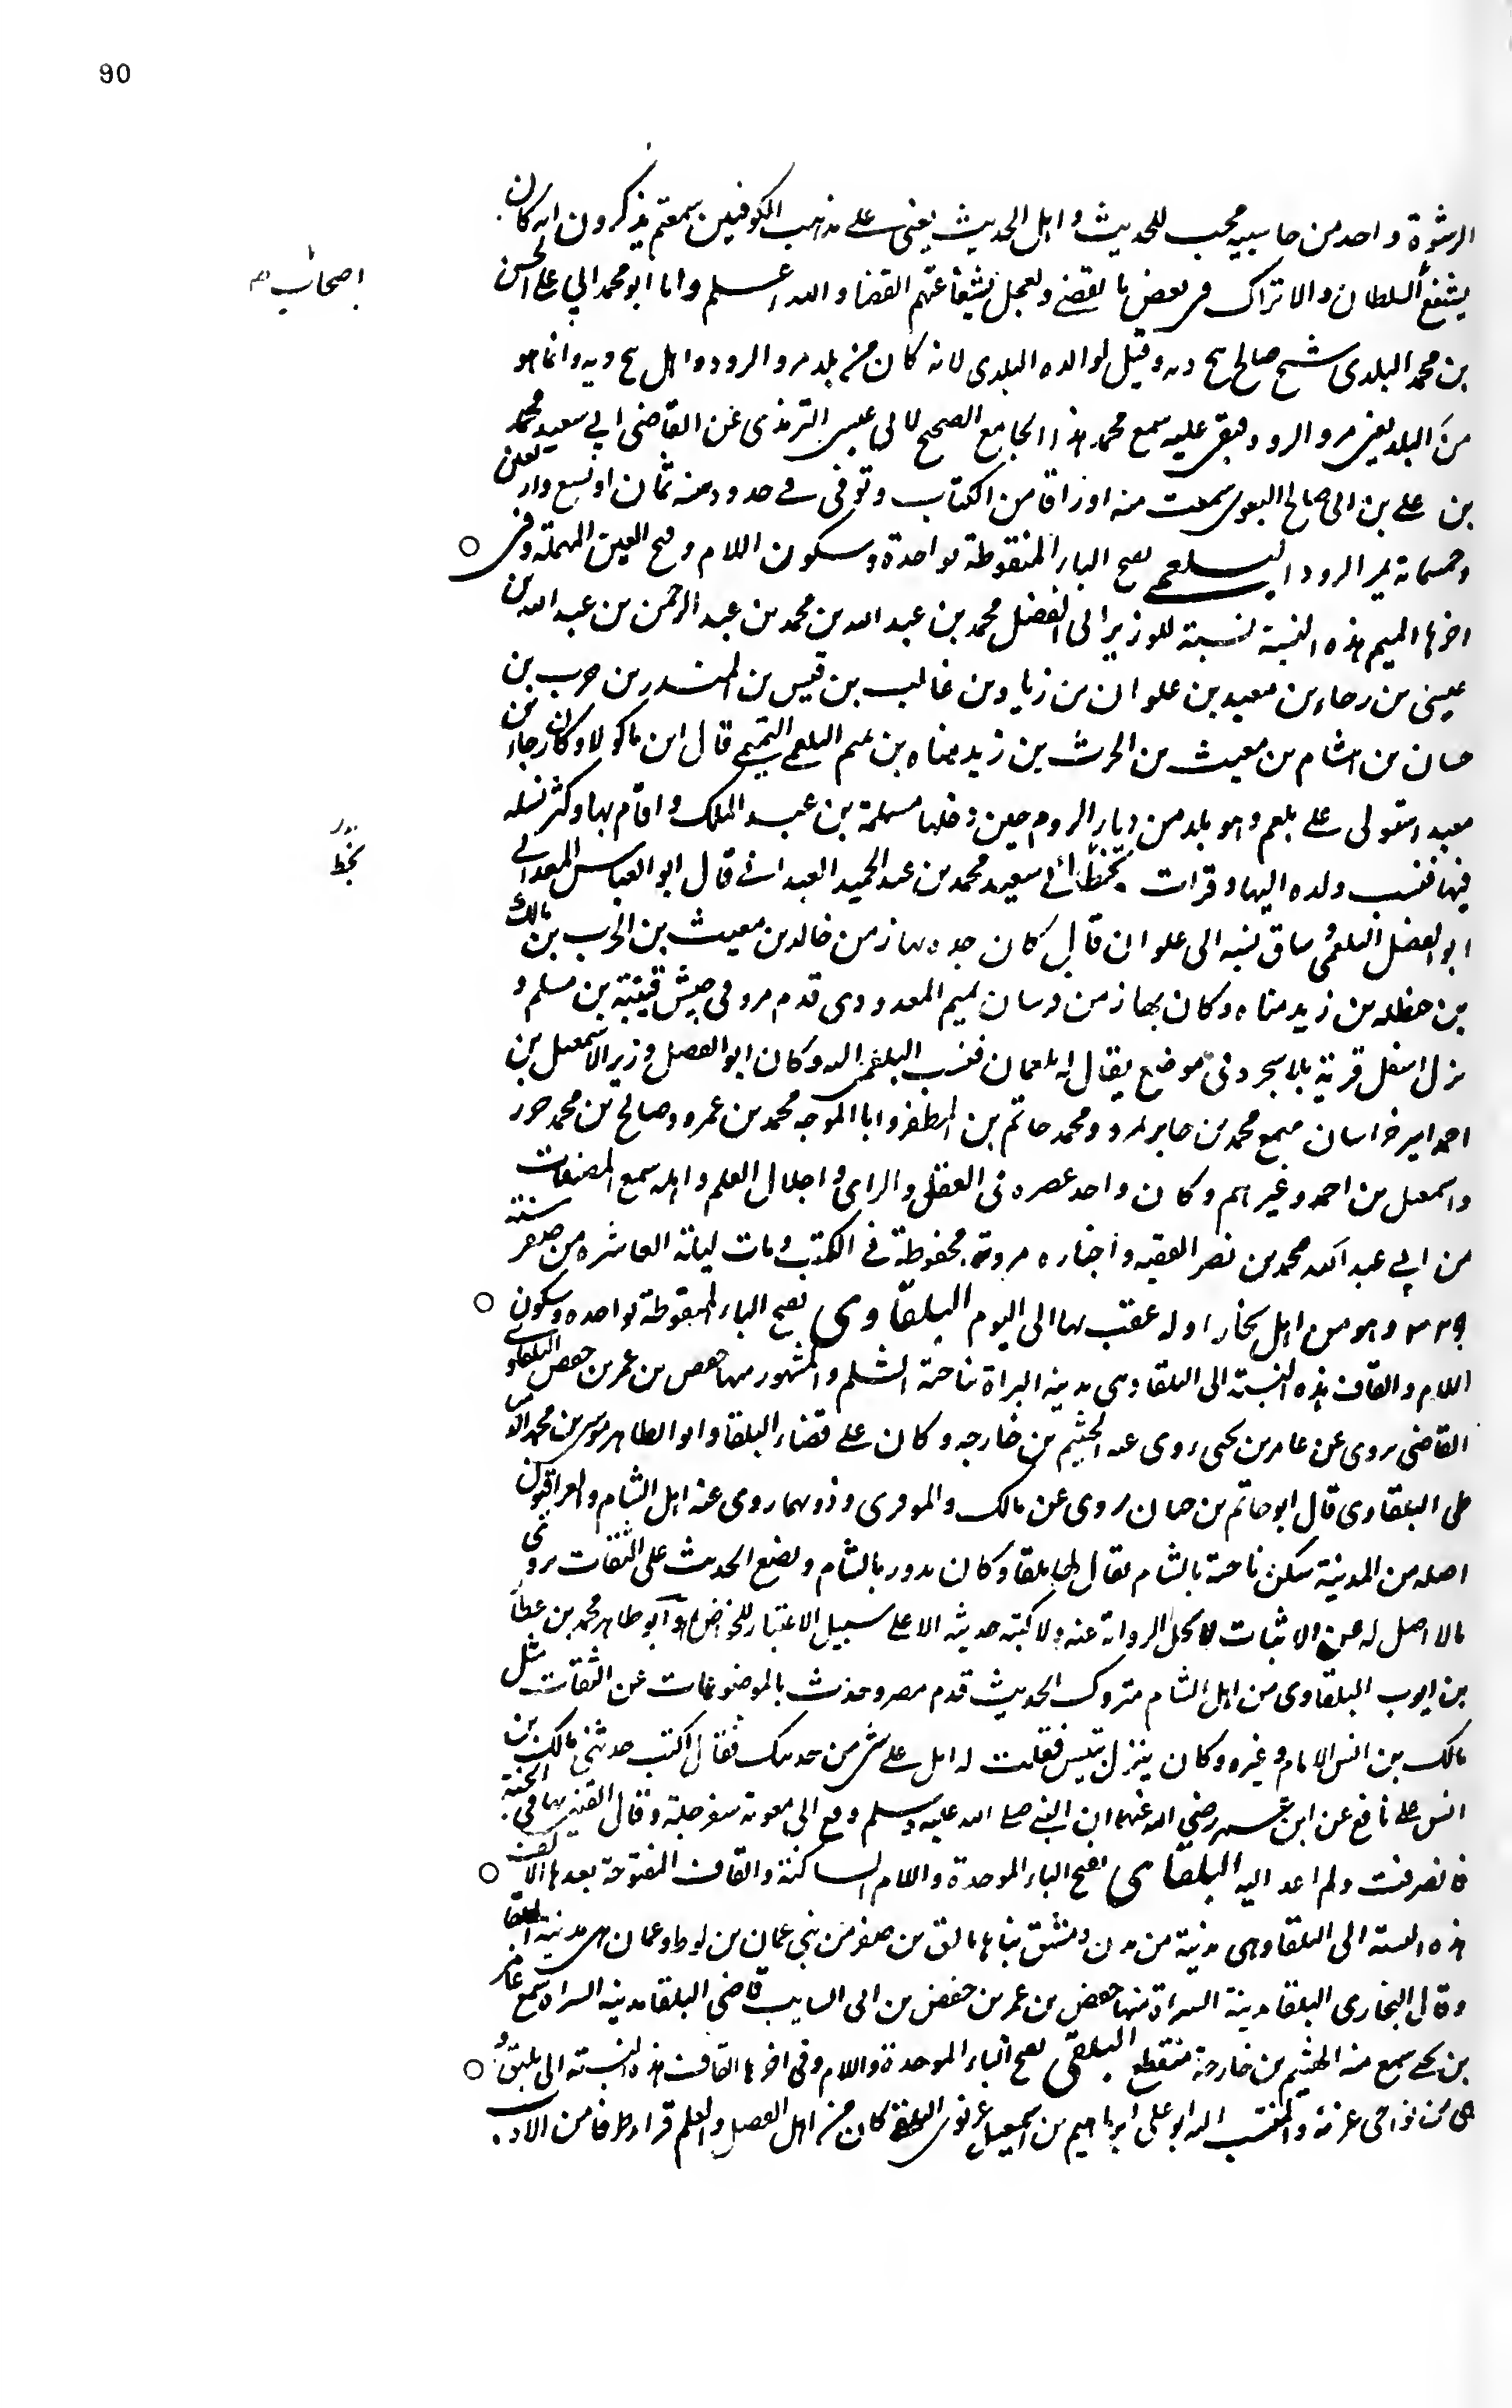 90
الرشوة واحد من حاسبيه محب للحديث و اهل الحديث يعنى على مذهب الكوفيين سمعتهم يذكرون انه كان
يشفع السلطان والاتراك فى بعض ما يقضى ويعجل بشفاعتهم القضا والله اعلم واما ابو محمد ابى على الحسن
اصحاب
بن محمد البلدى شيخ صالح وقيل لوالده البلدى لانه كان من بلد مرو الرود واهل وانما هو
من البلد يعنى مرو الرود فبقى عليه سمع محمد هذا الجامع الصحيح لابى عيسى الترمذى عن القاضى ابى سعيد محمد
بن على بن ابى صالح البغوى سمعت منه اوراقا من الكتاب وتوفى فى حدود سنه ثمان او تسع واربعين
وخمسمائة بمرو الرود البلعمى بفتح الباء المنقوطة بواحدة وسكون اللام وفتح العين المهملة وفى
اخرها الميم هذه النسبة نسبة للوزير ابى الفضل محمد بن عبد الله بن محمد بن عبد الرحمن بن عبد الله بن
عيسى بن رجاء بن معبد بن علوان بن زياد بن غالب بن قيس بن المنذر بن حرب بن
حسان بن هشام بن مغيث بن الحرث بن زيد مناه بن تميم البلعمى التميمى قال ابن ماكولا وكان رجاء بن
معبد استولى على بلعم وهو بلد من ديار الروم حين دخلها مسلمة بن عبد الملك واقام بها وكثر نسله
فيها فنسب ولده اليها وقرات بخط ابى سعيد محمد بن عبد الحميد العبدانى قال ابو العباس المعدانى
بخط
ابو الفضل البلعمى ساق نسبه الى علوان قال كان جده بهاز من خالد بن مغيث بن الحرب بن مالك
بن حنظله بن زيد مناه وكان بهاز من فرسان تميم المعدودى قدم مرو فى جيش قتيبة بن مسلم و
نزل اسفل قرية بلاسجرد فى موضع يقال له بلعمان فنسب البلعمى اليه وكان ابو الفضل وزير الاسمعيل بن
احمد امير خراسان سمع محمد بن جابر بمرو ومحمد حاتم بن المظفر وابا الموجه محمد بن عمرو وصالح بن محمد جزر
واسمعيل بن احمد وغيرهم وكان واحد عصره فى العقل والراى و اجلال العلم واهله سمع المصنفات
من ابى عبد الله محمد بن نصر الفقيه واخباره مروية محفوظة فى الكتب ومات ليلة العاشره من صفر سنة
٣٢٩ وهو من اهل بخارا وله عقب بها الى اليوم البلقاوى بفتح الباء المنقوطة بواحده وسكون
اللام والقاف هذه النسبة الى البلقا وهى مدينه الشراة بناحية الشام والمشهور منها حفص بن عمر بن حفص البلقاوى
القاضى يروى عن عامر بن يحيى روى عنه الهيثم بن خارجه وكان على قضاء البلقا وابو الطاهر موسى بن محمد
البلقاوى قال ابو حاتم بن حبان يروى عن مالك والموقرى وذويهما روى عنه اهل الشام والعراقيون
اصله من المدينة سكن ناحية بالشام يقال لها بلقا وكان يدور بالشام ويضع الحديث على الثقات يروى
مالا اصل له عن الاثبات لا تحل الرواية عنه ولا كتبة حديثه الا على سبيل الاعتبار للخواص ابو طاهر محمد بن عطا
بن ايوب البلقاوى من اهل الشام متروك الحديث قدم مصر وحدث بالموضوعات عن الثقات مثل
مالك بن انس الامام وغيره وكان ينزل تنيس فقلت له امل على شى من حديثك فقال اكتب حدثنى مالك بن
انس على نافع عن ابن عمر رضى الله عنهما ان النبى صلى الله عليه وسلم دفع الى معوية سفرجلة وقال القنى بها فى الجنة
فانصرفت ولم اعد اليه البلقاى بفتح الباء الموحدة واللام الساكنة والقاف المفتوحة بعدها الالف
هذه النسبة الى البلقا وهى مدينة من مدن دمشق بناها بالق بن صفر من بنى عمان بن لوط وعمان هى مدينة البلقا
وقال البخارى البلقا مدينة الشراة منها حفص بن عمر بن حفص بن ابى السايب قاضى البلقا مدينه الشراه سمع عامر
بن يحيى سمع منه الهيثم بن خارجة منقطع البلقى بفتح الباء الموحدة واللام وفى اخرها القاف هذه النسبة الى بلق و
هى من نواحى غزنة والمنتسب اليه ابو على ابراهيم بن اسمعيل غزنوى البلقى كان من اهل الفضل والعلم قراء طرفا من الادب